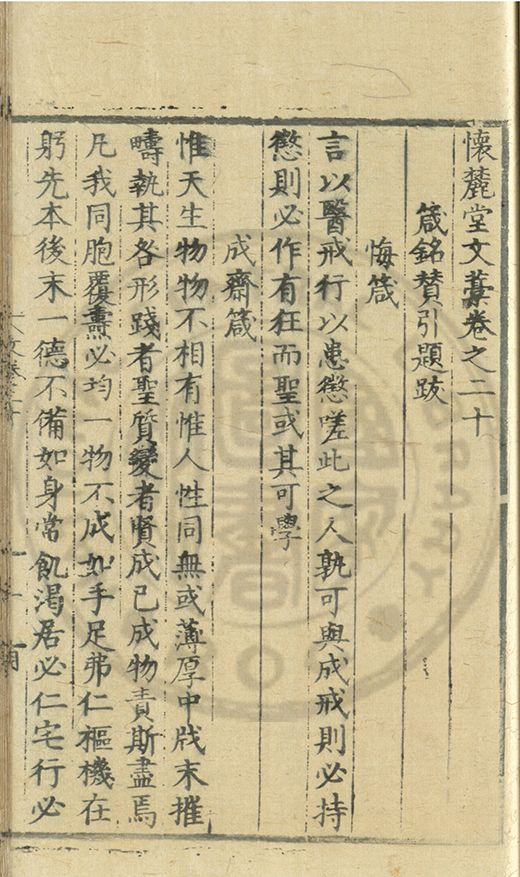 懷麓堂文藁卷之二十
箴銘贊引題跋
悔箴
言以醫戒行以患懲嗟此之人孰可與成戒則必持
懲則必作有狂而聖或其可學
成齋箴
惟天生物物不相有惟人性同無或薄厚中戕末摧
疇執其各形踐者聖質變者賢成已成物責斯盡焉
凡我同胞覆燾必均一物不成如手足弗仁樞機在
躬先本後末一德不備如身常飢渴居必仁宅行必